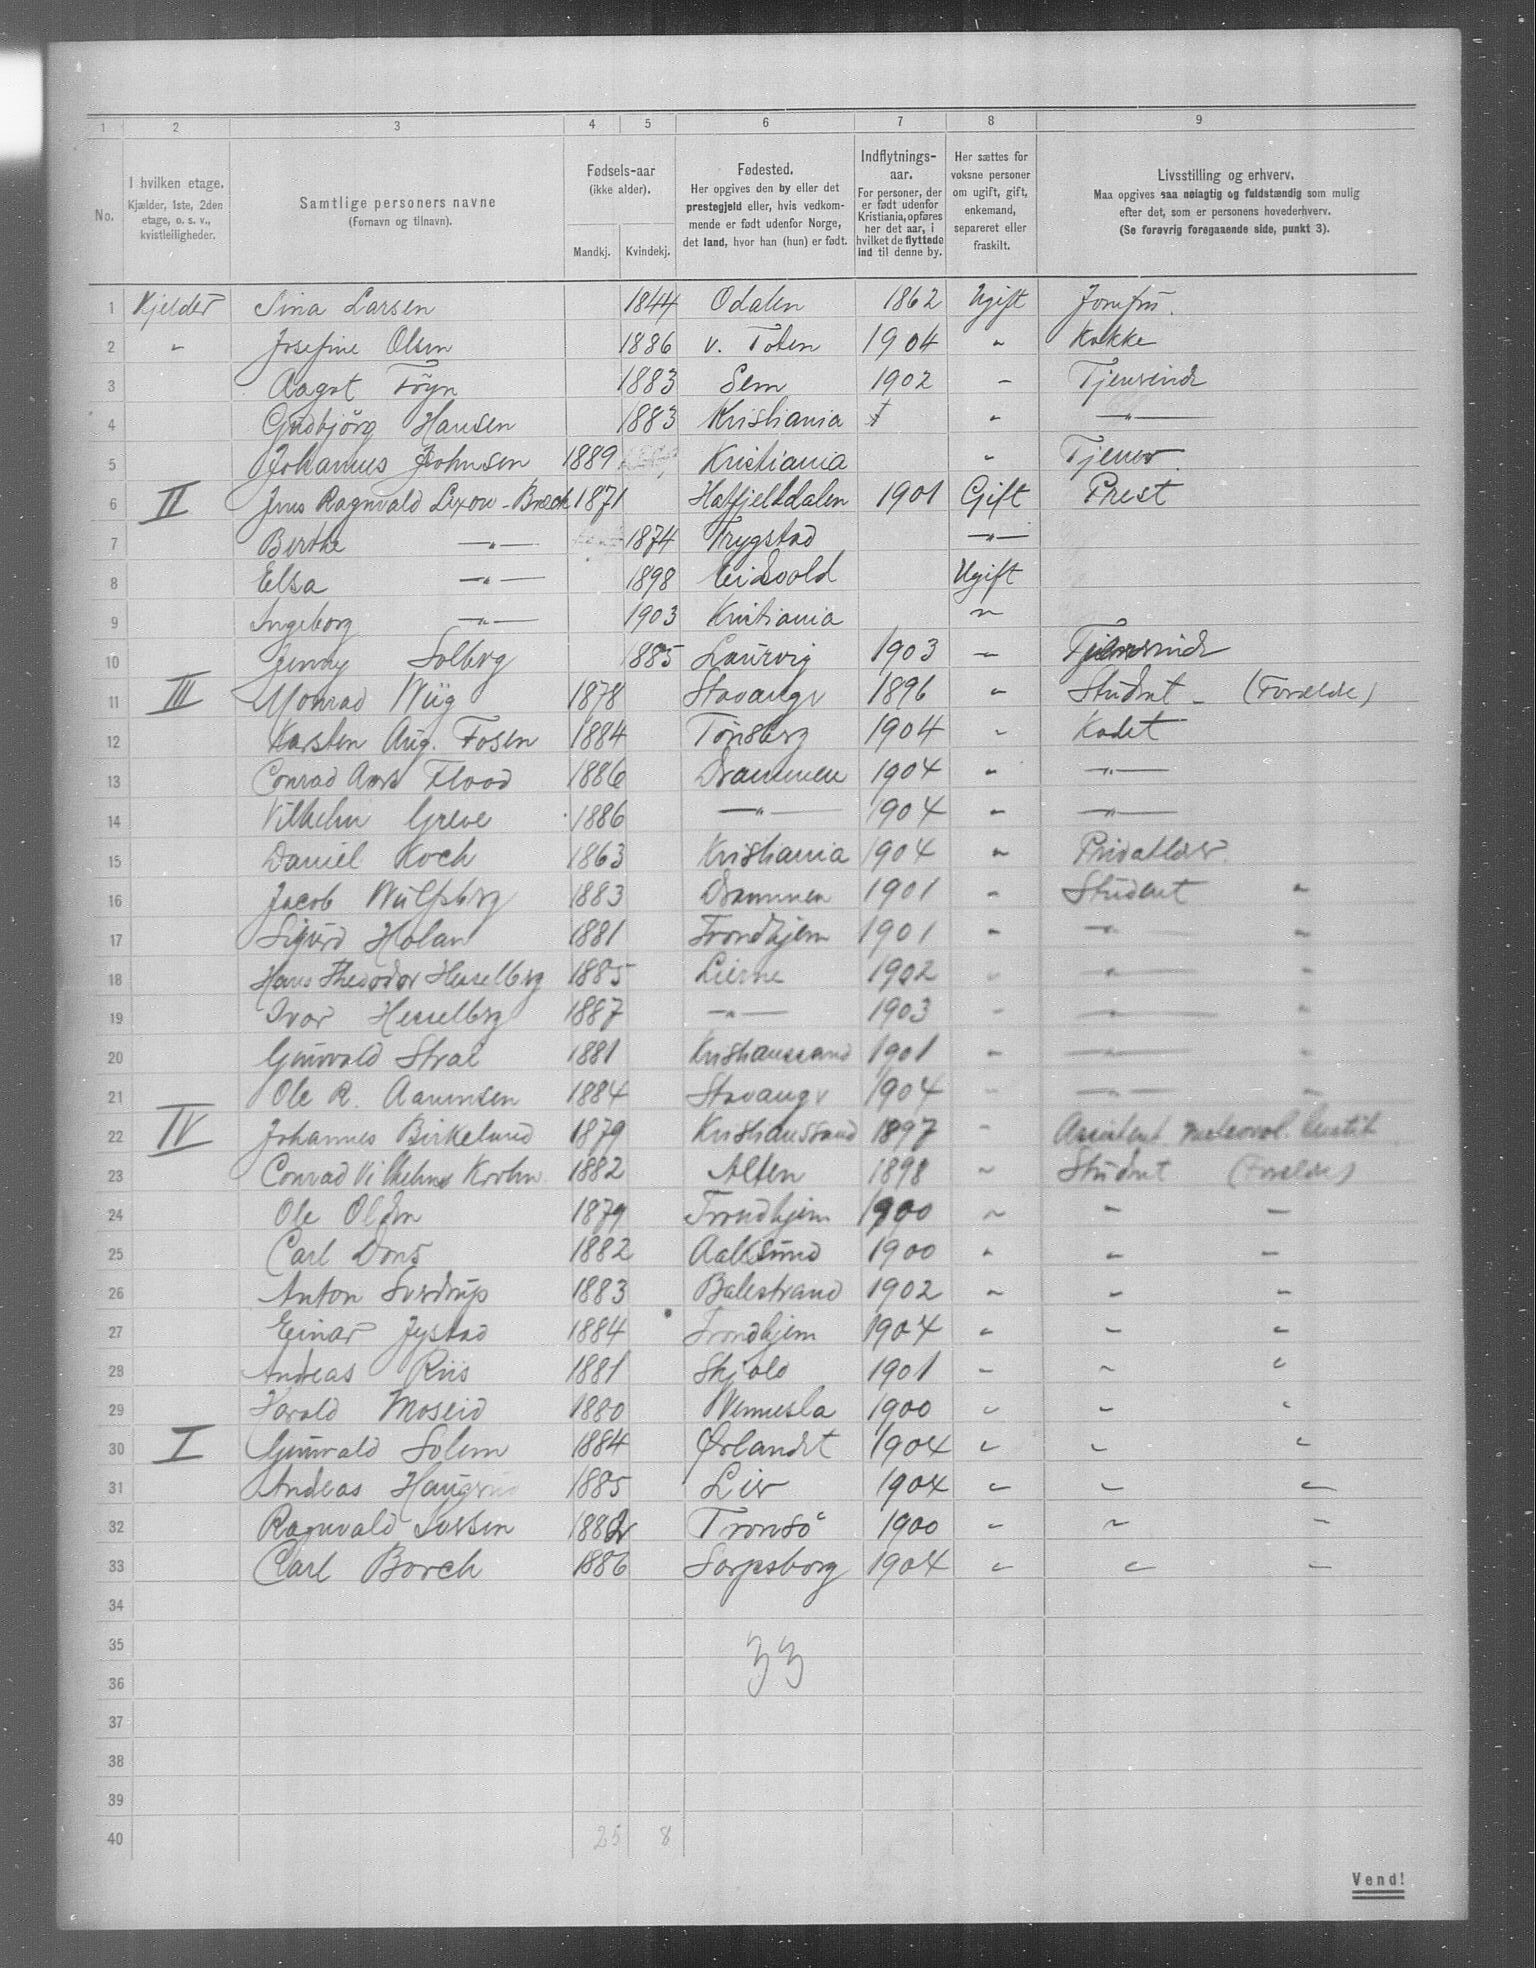 1 2 3 4 5 6 7 8 9
No.
I hvilken etage.
Kjælder, 1ste, 2den
etage, o. s. v.,
kvistleiligheder.
Samtlige personers navne
(Fornavn og tilnavn).
Fødsels-aar
(ikke alder).
Mandkj. Kvindekj.
Fødested.
Her opgives den by eller det
prestegjeld eller, hvis vedkom-
mende er født udenfor Norge,
det land, hvor han (hun) er født.
Indflytnings-
aar.
For personer, der
er født udenfor
Kristiania, opføres
her det aar, i
hvilket de flyttede
ind til denne by.
Her sættes for
voksne personer
om ugift, gift,
enkemand,
separeret eller
fraskilt.
Livsstilling og erhverv.
Maa opgives saa nøiagtig og fuldstændig som mulig
efter det, som er personens hovederhverv.
(Se forøvrig foregaaende side, punkt 3).
1 Kjelder Sina Larsen 1844 Odalen 1862 Ugift Jomfru.
2 " Josefine Olsen 1886 v. Toten 1904 " Kokke
3 Aagot Føyn 1883 Sem 1902 " Tjenerinde
4 Gudbjörg Hansen 1883 Kristiania † " — " —
5 Johannes Johnsen 1889 Kristiania " Tjener
6 II Jens Ragnvald Lixow-Bræck 1871 Hatfjelddalen 1901 Gift Prest
7 Berthe — " — 1874 Trygstad — " —
8 Elsa — " — 1898 Eidsvold Ugift
9 Ingeborg — " — 1903 Kristiania "
10 Jenny Solberg 1885 Laurvig 1903 " Tjenerinde
11 III Monrad Wiig 1878 Stavanger 1896 " Student - (Forældre)
12 Karsten Aug. Fosen 1884 Tønsberg 1904 " Kadet
13 Conrad Flood 1886 Drammen 1904 " — " —
14 Vilhelm Greve 1886 — " — 1904 " — " —
15 Daniel Koch 1863 Kristiania 1904 " Privatlærer
16 Jacob Wulfsberg 1883 Drammen 1901 " Student "
17 Sigurd Holan 1881 Trondhjem 1901 " — " — "
18 Hans Theodor Hesselberg 1885 Lierne 1902 " — " — "
19 Ivar Hesselberg 1887 — " — 1903 " — " — "
20 Gunvald Stral 1881 Kristianssand 1901 " — " — "
21 Ole R. Aamunsen 1884 Stavanger 1904 " — " — "
22 IV Johannes Birkelund 1879 Kristianssand 1897 " Assistent meteorol. Instit
23 Conrad Vilhelm Krohn 1882 Alten 1898 " Student (Forældre)
24 Ole Olden 1879 Trondhjem 1900 " " "
25 Carl Dons 1882 Aalesund 1900 " " "
26 Anton Sverdrup 1883 Balestrand 1902 " " "
27 Einar Jystad 1884 Trondhjem 1904 " " "
28 Andreas Riis 1881 Skjold 1901 " " "
29 Harald Moseid 1880 Wennesla 1900 " " "
30 I Gunvald Solem 1884 Ørlandet 1904 " " "
31 Andreas Haugerud 1885 Lier 1904 " " "
32 Ragnvald 1882 Tromsö 1900 " " "
33 Carl Borch 1886 Sarpsborg 1904 " " "
34
35
33
36
37
38
39
40 25 8
Vend!